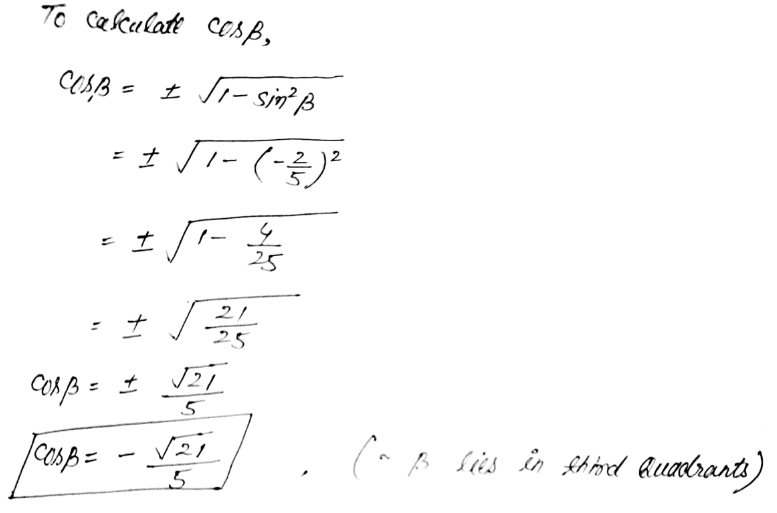 To calculate cosβ,
cosβ = ± √1 - sin²β
= ± √1 - (-2/5)²
= ± √1 - 4/25
= ± √21/25
cosβ = ± √21/5
cosβ = - √21/5 . (∵ β lies in third Quadrants)